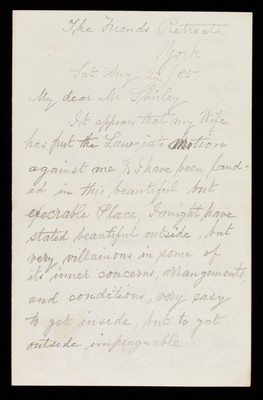 The Friends Retreat
York
Sat Aug /05
My dear Mr
It appears that my Wife
has put the Law into Motion
against me & I have been land-
ed in this beautiful but
execrable Place, I might have
stated beautiful outside, but
very, villainous in some of
its inner concerns, arrangements,
and conditions, very easy
to get inside, but to get
outside impregnable